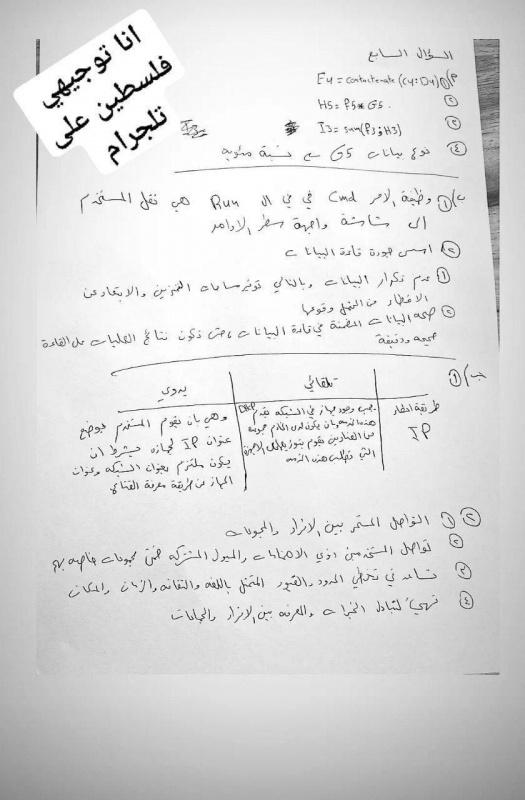 انا توجيهي
فلسطين على
تلجرام
السؤال السابع
أ) ① E4 = contactenate (C4:D4)
② H5 = F5 * G5
③ I3 = sum(F3:H3)
④ نوع بيانات G5 هي نسبة مئوية
ب) ① وظيفة الامر Cmd في ال Run هي نقل المستخدم
الى شاشة واجهة سطر الاوامر
② اسس جودة قاعدة البيانات
① عدم تكرار البيانات وبالتالي توفير مساحات التخزين والابتعاد عن
الاخطار من المحتمل وقوعها
② صحة البيانات المضمنة في قاعدة البيانات، حتى تكون نتائج العمليات على القاعدة
صحيحة ودقيقة
ج) ①
تلقائي
يدوي
طريقة اعطاء
IP
يجب وجود جهاز في الشبكة يقدم DHCP
هذه الخدمة وان يكون لدى الخادم مجموعة
من العناوين يقوم بتوزيعها على الاجهزة
التي تطلب هذه الخدمة
وهي بان يقوم المستخدم بوضع
عنوان IP لجهازه بشرط ان
يكون ملتزم بعنوان الشبكة وعنوان
الجهاز عن طريقة معرفة القناع
② ① التواصل المستمر بين الافراد والمجموعات
② تواصل المستخدمين ذوي الاهتمامات والميول المشتركة ضمن مجموعات خاصة بهم
③ تساعد في تخطي الحدود والقيود المتمثل باللغه والثقافه والزمان والمكان
④ تهيئ لتبادل الخبرات والمعرفه بين الافراد والجماعات